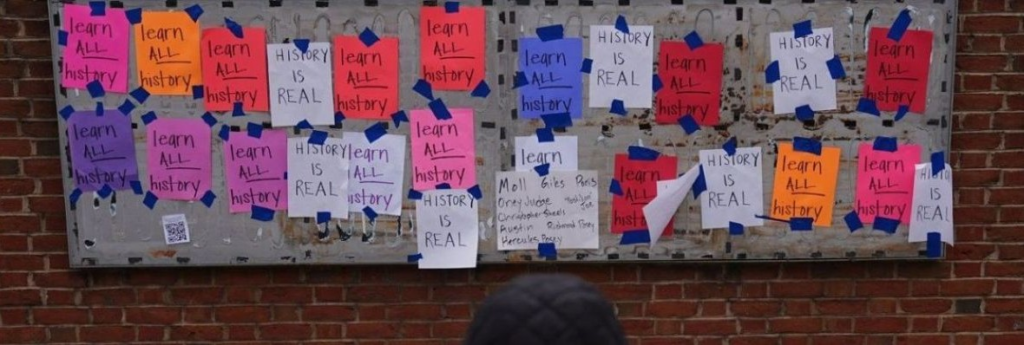 learn
ALL
history
learn
ALL
history
learn
ALL
history
HISTORY
IS
REAL
learn
ALL
history
learn
ALL
history
learn
ALL
history
HISTORY
IS
REAL
learn
ALL
history
HISTORY
IS
REAL
learn
ALL
history
learn
ALL
history
learn
ALL
history
learn
ALL
history
HISTORY
IS
REAL
learn
ALL
history
learn
ALL
history
HISTORY
IS
REAL
learn
Moll Giles Paris
Oney Judge
Joe
Christopher Sheels
Austin
Hercules Posey
learn
ALL
history
HISTORY
IS
REAL
learn
ALL
history
learn
ALL
history
HISTORY
IS
REAL